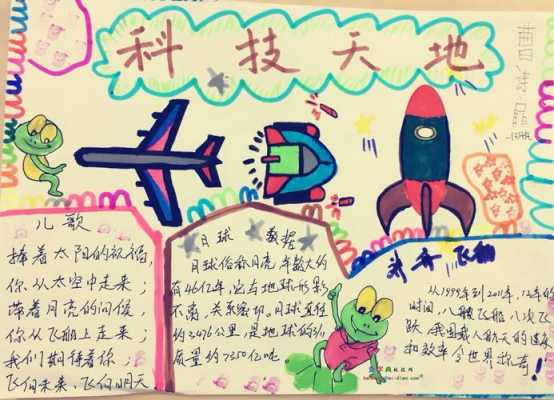 科技天地
儿歌
捧着太阳的祝福,
你从太空中走来;
带着月亮的问候,
你从飞船上走来;
我们期待着你;
飞向未来、飞向明天
月球 数据
月球俗称月亮,年龄大约
有46亿年,它与地球形影
不离,关系密切,月球直径
约3476公里,是地球的3/11
质量约7350亿吨
飞船
从1999年到2011年,12年的
时间,八艘飞船,八次飞
跃,我国载人航天的速度
和效率令世界称奇!